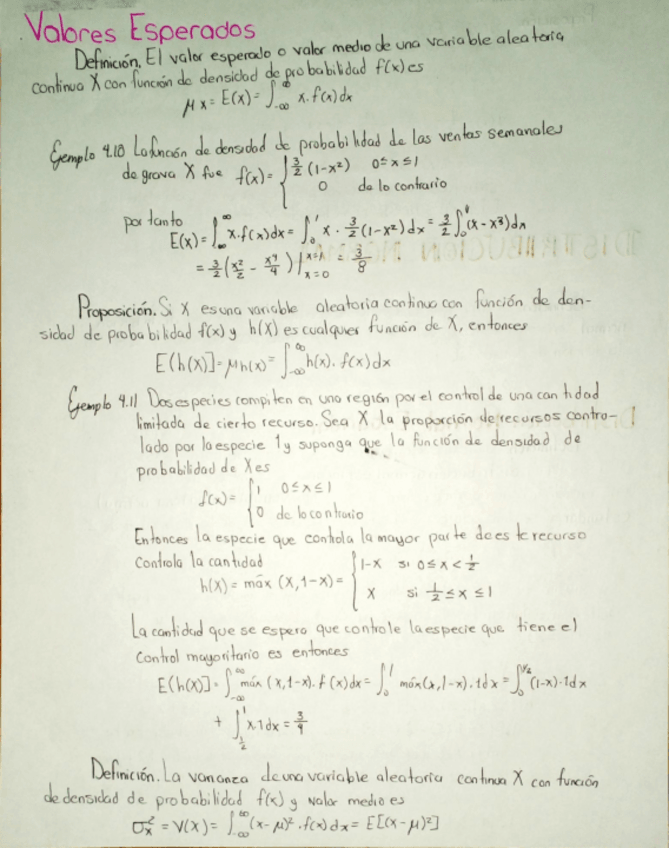 Valores Esperados
Definición. El valor esperado o valor medio de una variable aleatoria
continua X con función de densidad de probabilidad f(x) es
μx = E(x) = ∫_{-∞}^{∞} x.f(x)dx
Ejemplo 4.10 La función de densidad de probabilidad de las ventas semanales
de grava X fue f(x) = { 3/2 (1-x²) 0≤x≤1
0 de lo contrario
por tanto
E(x) = ∫_{-∞}^{∞} x.f(x)dx = ∫_0^1 x · 3/2 (1-x²)dx = 3/2 ∫_0^1 (x - x³)dx
= 3/2 (x²/2 - x⁴/4) |_{x=0}^{x=1} = 3/8
Proposición. Si X es una variable aleatoria continua con función de den-
sidad de probabilidad f(x) y h(X) es cualquier función de X, entonces
E(h(X)] = μh(x) = ∫_{-∞}^{∞} h(x). f(x)dx
Ejemplo 4.11 Dos especies compiten en una región por el control de una cantidad
limitada de cierto recurso. Sea X la proporción de recursos contro-
lado por la especie 1 y suponga que la función de densidad de
probabilidad de X es
f(x) = { 1 0≤x≤1
0 de lo contrario
Entonces la especie que controla la mayor parte de este recurso
controla la cantidad
h(X) = máx (X, 1-x) = { 1-X si 0≤x<1/2
X si 1/2≤x≤1
La cantidad que se espera que controle la especie que tiene el
control mayoritario es entonces
E(h(X)] = ∫_{-∞}^{∞} máx (x, 1-x). f(x)dx = ∫_0^1 máx(x, 1-x).1dx = ∫_0^{1/2} (1-x)·1dx
+ ∫_{1/2}^1 x.1dx = 3/4
Definición. La varianza de una variable aleatoria continua X con función
de densidad de probabilidad f(x) y valor medio es
σx² = V(X) = ∫_{-∞}^{∞} (x-μ)².f(x)dx = E[(x-μ)²]